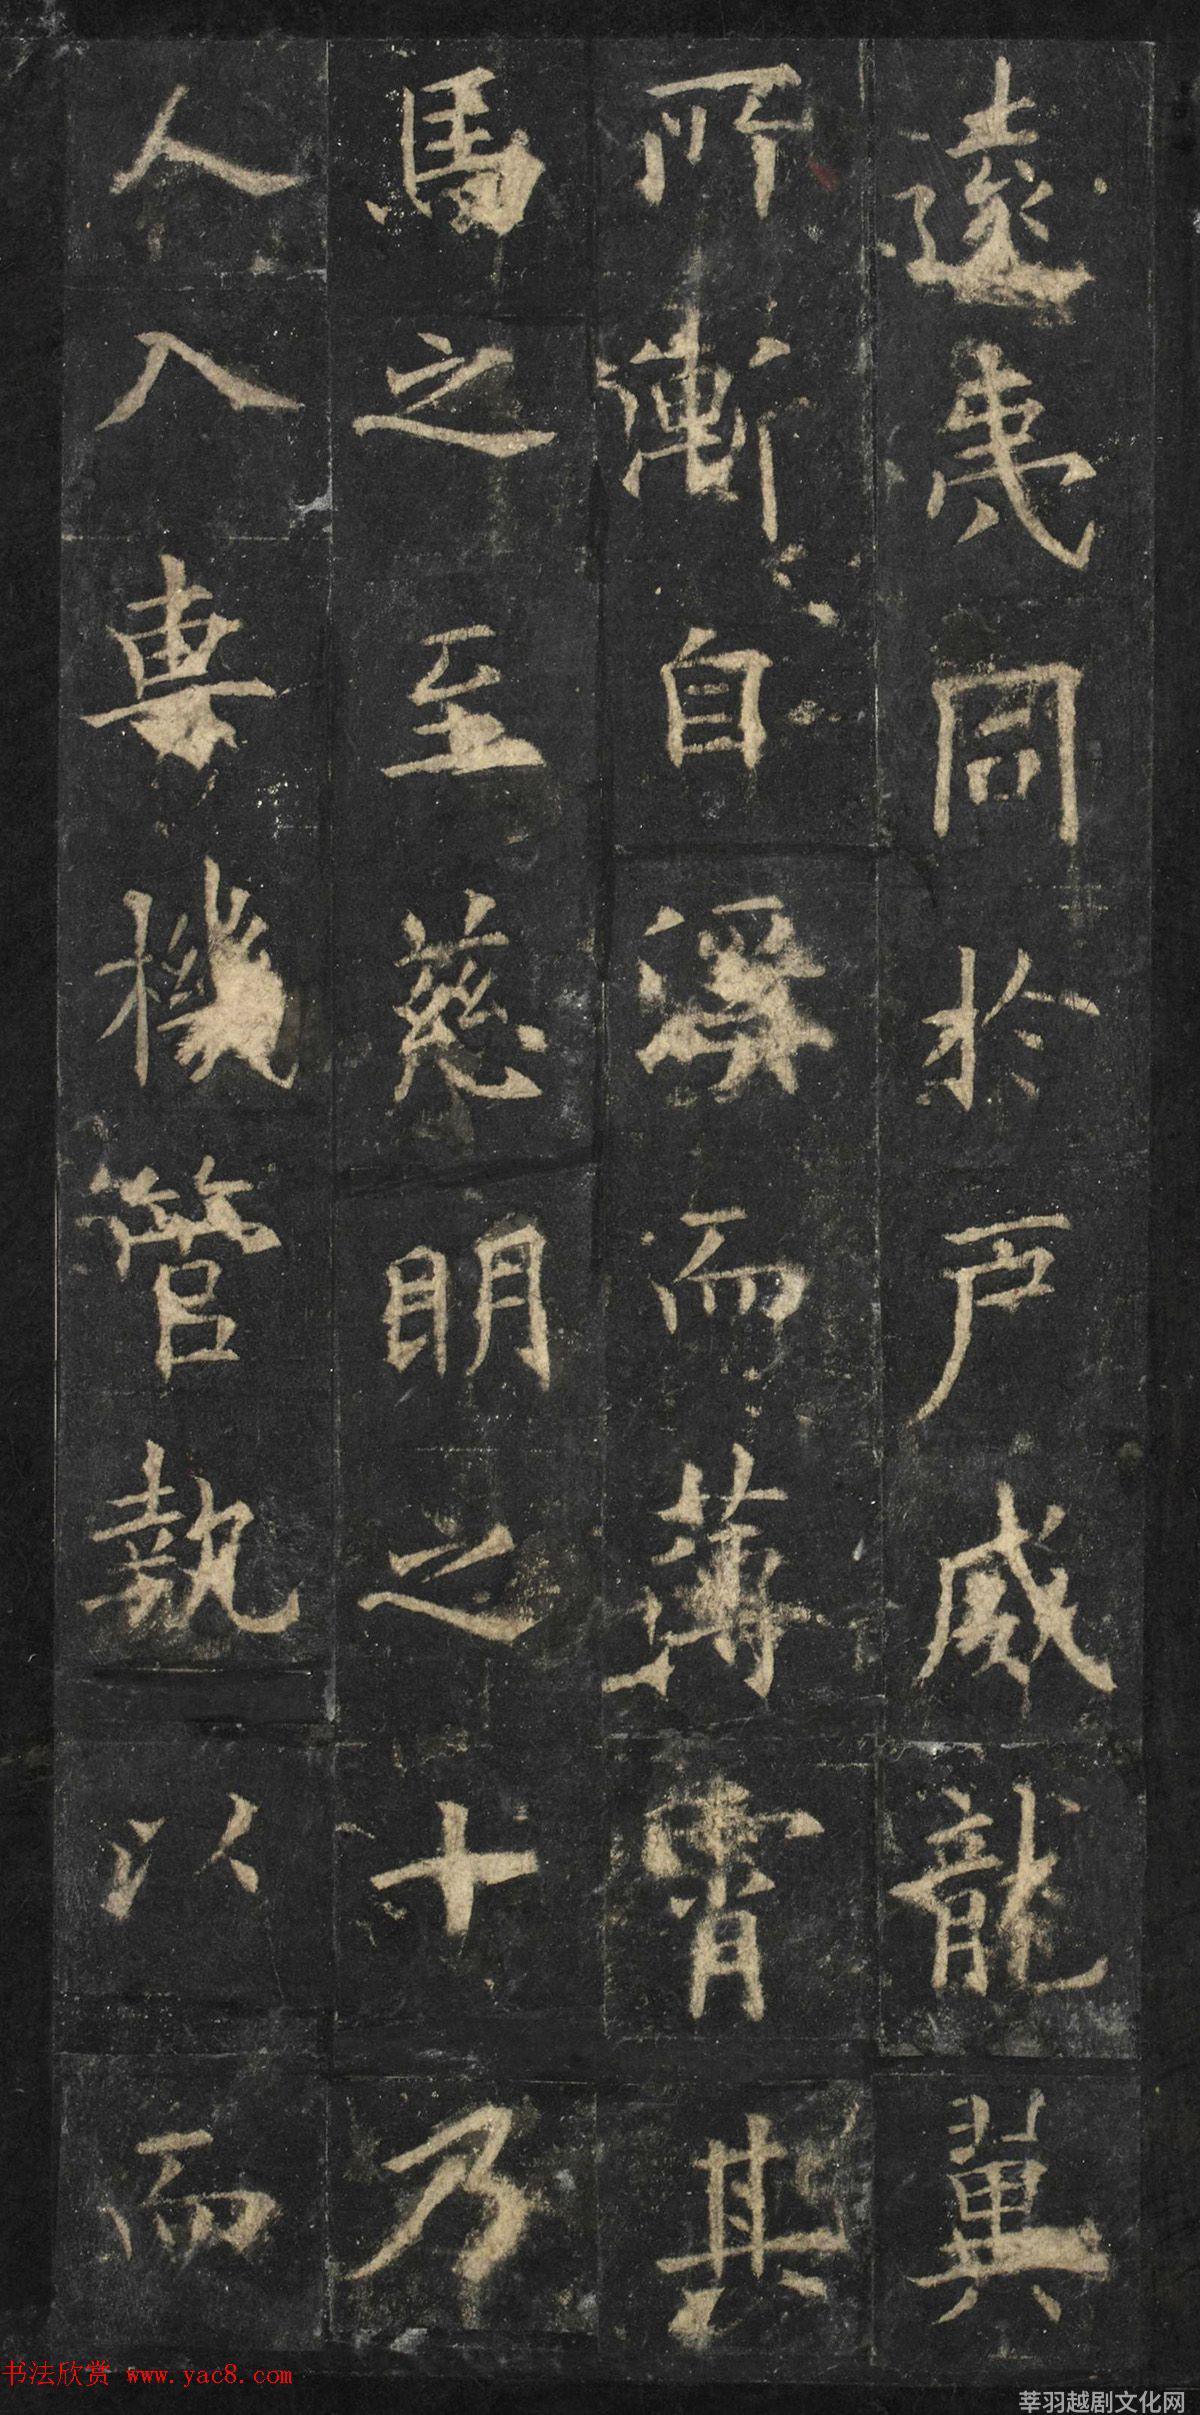 遠夷同於戶威龍冀
所漸自溪而薄霄其
馬之至慈明之十乃
人入專機管執以而
书法欣赏 www.yac8.com
莘羽越剧文化网